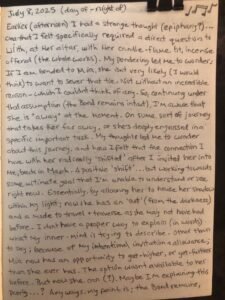 July 8, 2025 (day of - night of)
Earlier (afternoon) I had a strange thought (epiphany?)...
One that I felt specifically required a direct question to
Lilith, at Her altar, with Her candle-flame lit, incense
offered (the whole works). My pondering led me to wonder,
If I am bonded to Him, she very likely (I would
think) to want to sever that tie. Not without an incredible
reason - which I couldn't think of any. So, continuing under
that assumption (the Bond remains intact), I'm aware that
she is "away" at the moment. On some sort of journey
that takes her far away, or she's deeply engrossed in a
specific important task. My thoughts led me to wonder
about this journey, and how I felt that the connection I
have with her had really 'shifted' after I invited her into
me, back in March. A positive 'shift'... but working toward
some ultimate goal that I'm unable to understand or see
right now. Essentially, by allowing her to house her shadow
within my light; now she has an 'out' (from the darkness)
and a mode to travel + traverse as she may not have had
before. I don't have a proper way to explain (in words)
what my inner-mind is trying to describe. Other than
to say; because of my intentional invitation & allowance;
she now had an opportunity to get higher, or get farther
than she ever has. The option wasn't available to her
before... But now she can (?). Maybe I'm explaining this
...? Anyways, my point is; the Bond remains,